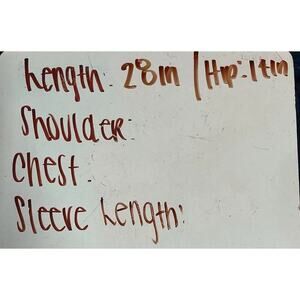 Length: 28in / Hip:
Shoulder:
Chest:
Sleeve Length: